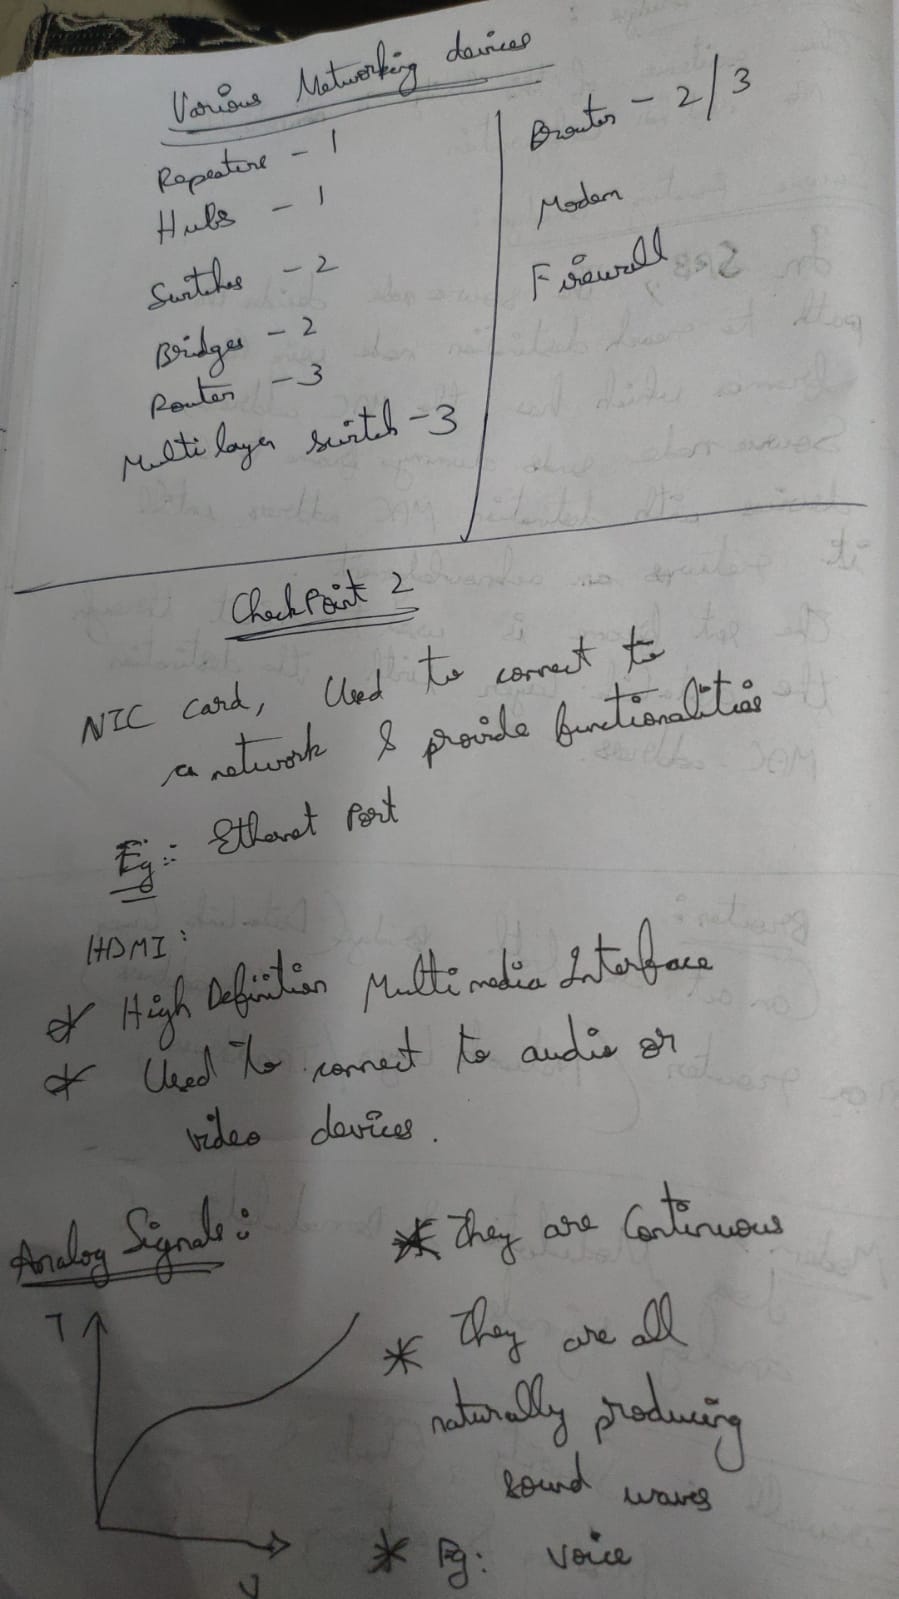 Various Networking devices
Repeaters - 1
Hubs - 1
Switches - 2
Bridges - 2
Router - 3
Multi layer switch - 3
Brouter - 2/3
Modem
Firewall
CheckPoint 2
NIC card, Used to connect to
a network & provide functionalities
Eg:: Ethernet Port
HDMI:
* High Definition Multimedia Interface
* Used to connect to audio or
video devices.
Analog Signals:
* They are Continuous
* They are all
naturally producing
sound waves
* Eg: Voice